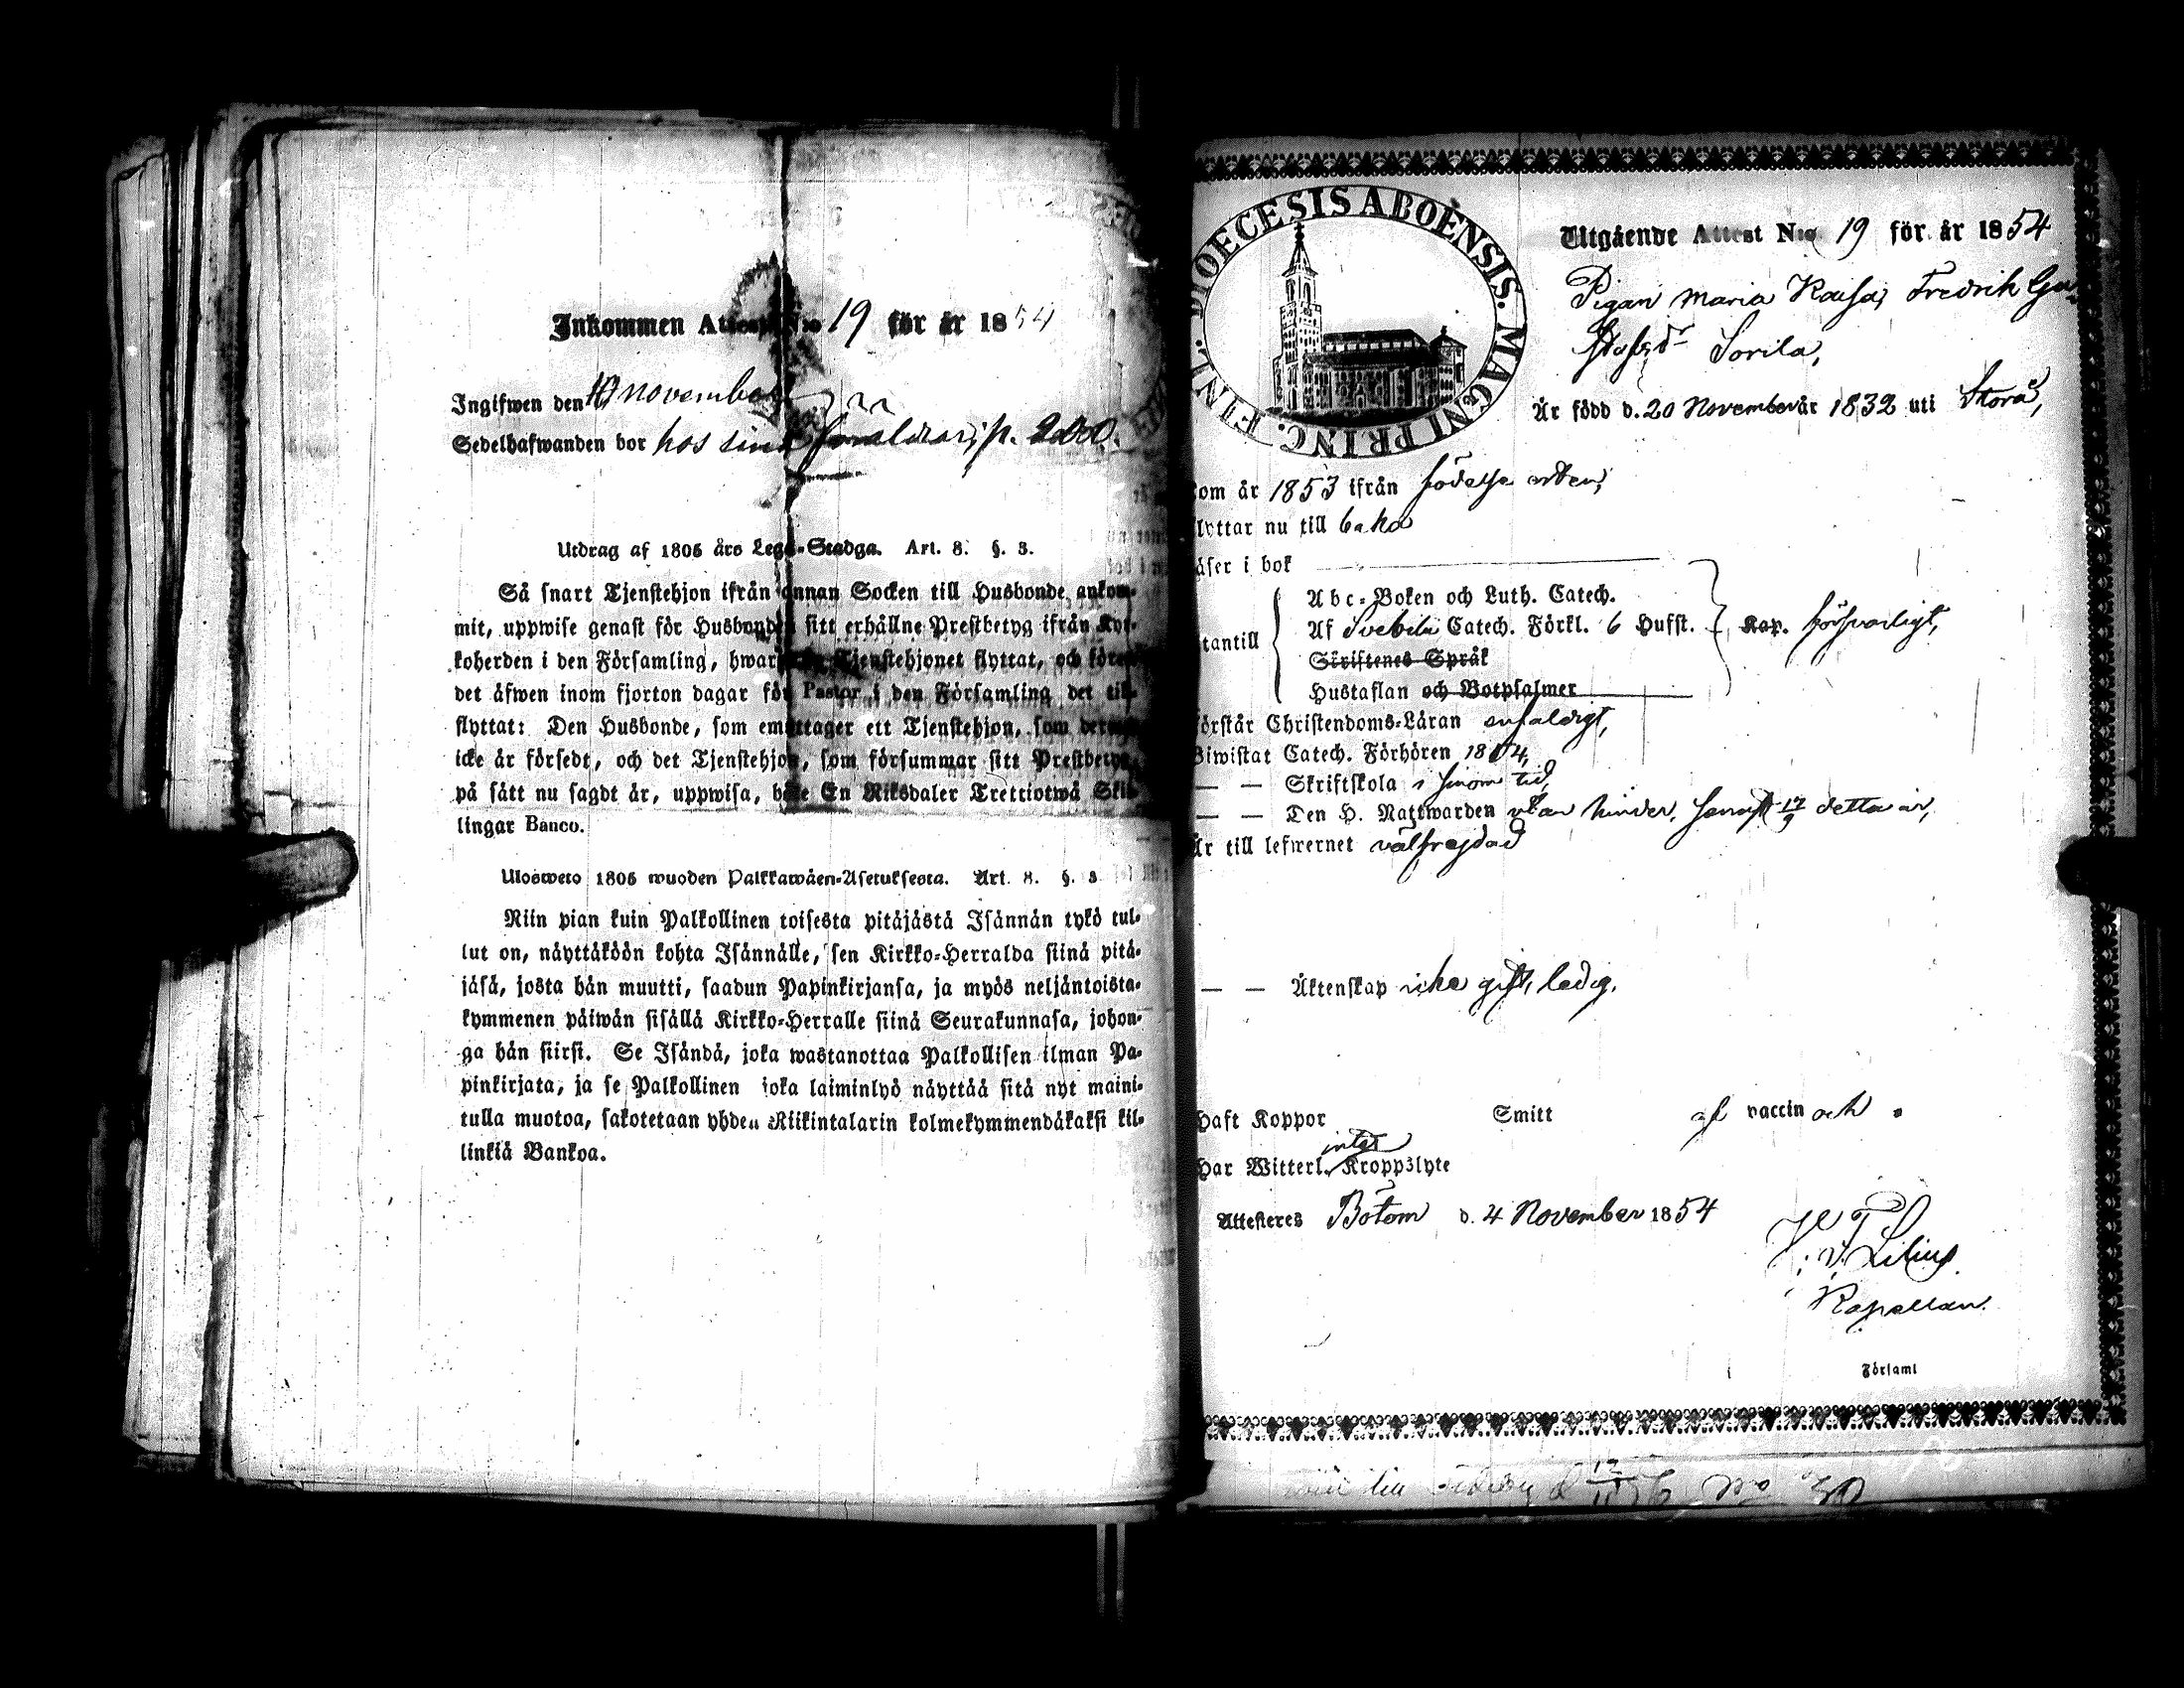 Inkommen Attest N:o 19 för år 1854
Ingifwen den 10 november
Sedelhafwanden bor hos sina föräldrar, p.
Utdrag af 1805 års Lego-Stadga. Art. 8. §. 3.
Så snart Tjenstehjon ifrån annan Socken till Husbonde ankom-
mit, uppwise genast för Husbonden sitt erhållne Prestbetyg ifrån Kyr-
koherden i den Församling, hwar Tjenstehjonet flyttat, och
det äfwen inom fjorton dagar för Pastor i den Församling det till-
flyttat: Den Husbonde, som emottager ett Tjenstehjon, som
icke är försedt, och det Tjenstehjon, som försummar sitt Prestbetyg,
på sätt nu sagdt är, uppwisa, böte En Riksdaler Trettiotwå Skil-
lingar Banco.
Ulosweto 1805 wuoden Palkkawäen-Asetuksesta. Art. 8. §. 3
Niin pian kuin Palkollinen toisesta pitäjästä Isännän tykö tul-
lut on, näyttäköön kohta Isännälle, sen Kirkko-Herralda siinä pitä-
jäsä, josta hän muutti, saadun Papinkirjansa, ja myös neljäntoista-
kymmenen päiwän sisällä Kirkko-Herralle siinä Seurakunnasa, johon-
ga hän siirsi. Se Isändä, joka wastanottaa Palkollisen ilman Pa-
pinkirjata, ja se Palkollinen joka laiminlyö näyttää sitä nyt maini-
tulla muotoa, sakotetaan yhden Riikintalarin kolmekymmendäkaksi kil-
linkiä Bankoa.
DIOECESIS ABOËNSIS. MAGNI PRINC. FINL.
Utgående Attest N:o 19 för år 1854
Pigan Maria Kaisa, Fredrik Gu-
stafsd:r Sorila,
Är född d. 20 November år 1832 uti Storå,
om år 1853 ifrån födelse orten,
lyttar nu till baka
äser i bok
Abc-Boken och Luth. Catech.
tantill Af Svebili Catech. Förkl. 6 Hufst. Kap. försvarligt,
Skriftenes Språk
Hustaflan och Botpsalmer
örstår Christendoms-Läran enfaldigt,
Biwistat Catech. Förhören 1854,
— — Skriftskola i sinom tid,
— — Den H. Nattwarden utan hinder, senast 17/9 detta år,
Är till lefwernet välfrejdad
— — Äktenskap icke gift, ledig.
Haft Koppor Smitt af vaccin och
intet
Har Witterl. Kroppslyte
Attesteres Bötom d. 4 November 1854
Lilius
Kapellan.
Församl
N:o 30